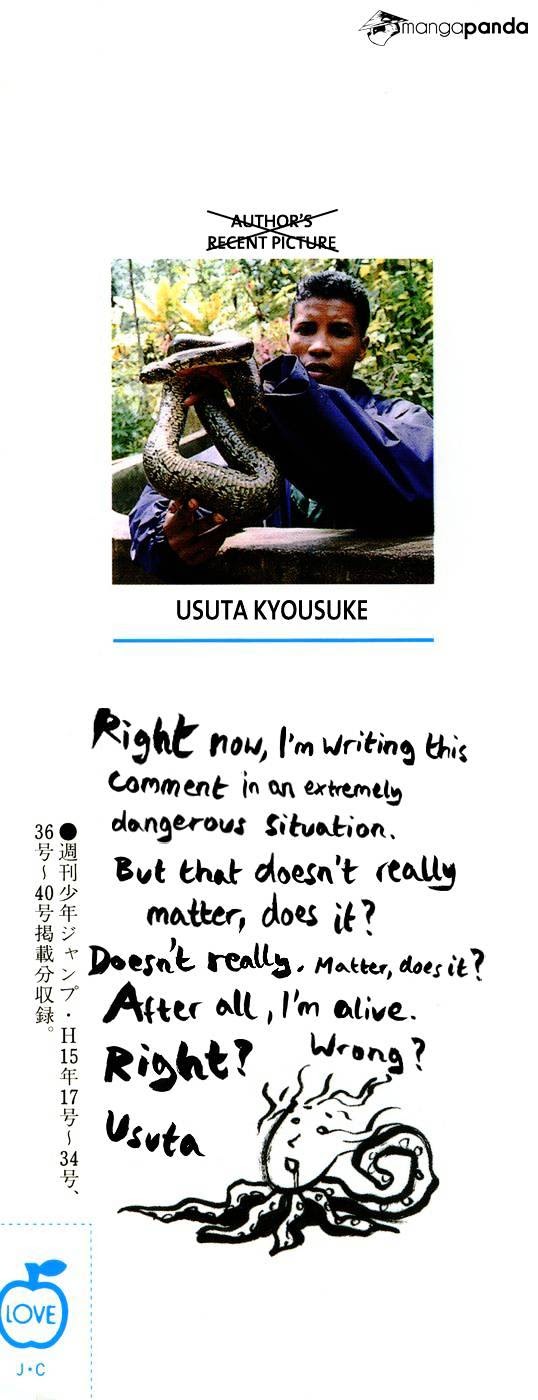 mangapanda
AUTHOR'S
RECENT PICTURE
USUTA KYOUSUKE
Right now, I'm writing this
comment in an extremely
dangerous situation.
But that doesn't really
matter, does it?
Doesn't really. Matter, does it?
After all, I'm alive.
Right? Wrong?
Usuta
●週刊少年ジャンプ・H15年17号～34号、
36号～40号掲載分収録。
LOVE
J・C